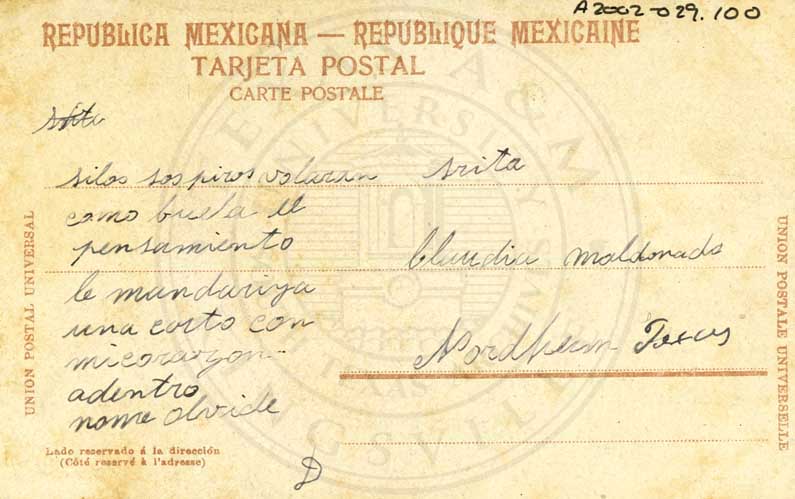 A2002-029.100
REPUBLICA MEXICANA — REPUBLIQUE MEXICAINE
TARJETA POSTAL
CARTE POSTALE
silos sospiros volaran
como buela el
pensamiento
le mandariya
una carta con
micorazon
adentro
nome olvide
D
Srita
Claudia Maldonado
Nordheim Texas
UNION POSTAL UNIVERSAL
UNION POSTALE UNIVERSELLE
Lado reservado á la dirección
(Côté reservé à l'adresse)
TEXAS A&M UNIVERSITY
KINGSVILLE